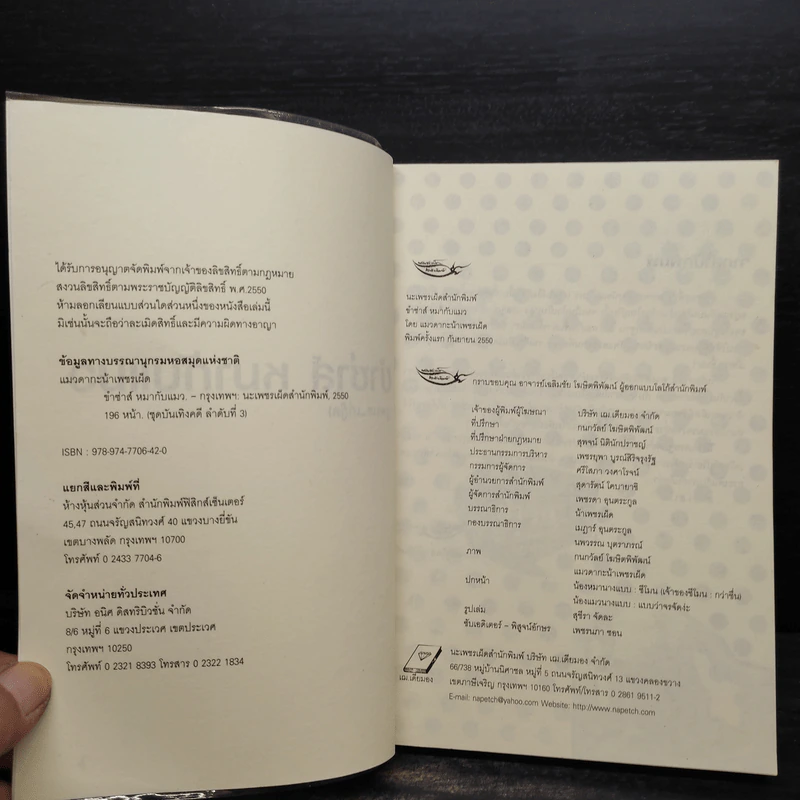 ได้รับการอนุญาตจัดพิมพ์จากเจ้าของลิขสิทธิ์ตามกฎหมาย
สงวนลิขสิทธิ์ตามพระราชบัญญัติลิขสิทธิ์ พ.ศ.2550
ห้ามลอกเลียนแบบส่วนใดส่วนหนึ่งของหนังสือเล่มนี้
มิเช่นนั้นจะถือว่าละเมิดสิทธิ์และมีความผิดทางอาญา
ข้อมูลทางบรรณานุกรมหอสมุดแห่งชาติ
แมวดากะน้าเพชรเผ็ด
ขำซ่าส์ หมากับแมว. – กรุงเทพฯ: นะเพชรเผ็ดสำนักพิมพ์, 2550
196 หน้า. (ชุดบันเทิงคดี ลำดับที่ 3)
ISBN : 978-974-7706-42-0
แยกสีและพิมพ์ที่
ห้างหุ้นส่วนจำกัด สำนักพิมพ์ฟิสิกส์เซ็นเตอร์
45,47 ถนนจรัญสนิทวงศ์ 40 แขวงบางยี่ขัน
เขตบางพลัด กรุงเทพฯ 10700
โทรศัพท์ 0 2433 7704-6
จัดจำหน่ายทั่วประเทศ
บริษัท อนิศ ดิสทริบิวชั่น จำกัด
8/6 หมู่ที่ 6 แขวงประเวศ เขตประเวศ
กรุงเทพฯ 10250
โทรศัพท์ 0 2321 8393 โทรสาร 0 2322 1834
นะเพชรเผ็ดสำนักพิมพ์
ขำซ่าส์ หมากับแมว
โดย แมวดากะน้าเพชรเผ็ด
พิมพ์ครั้งแรก กันยายน 2550
กราบขอบคุณ อาจารย์เฉลิมชัย โฆษิตพิพัฒน์ ผู้ออกแบบโลโก้สำนักพิมพ์
เจ้าของผู้พิมพ์ผู้โฆษณา บริษัท เฌ.เดียมอง จำกัด
ที่ปรึกษา กนกวัลย์ โฆษิตพิพัฒน์
ที่ปรึกษาฝ่ายกฎหมาย สุพจน์ นิตินักปราชญ์
ประธานกรรมการบริหาร เพชรยุพา บูรณ์สิริจรุงรัฐ
กรรมการผู้จัดการ ศรีโสภา วงศาโรจน์
ผู้อำนวยการสำนักพิมพ์ สุดารัตน์ โคบายาชิ
ผู้จัดการสำนักพิมพ์ เพชรดา อุนตระกูล
บรรณาธิการ น้าเพชรเผ็ด
กองบรรณาธิการ เมฏาร์ อุนตระกูล
นพวรรณ บุตราภรณ์
ภาพ กนกวัลย์ โฆษิตพิพัฒน์
แมวดากะน้าเพชรเผ็ด
ปกหน้า น้องหมานางแบบ : ซีโมน (เจ้าของซีโมน : กว่าชื่น)
น้องแมวนางแบบ : แบบว่าจรจัดง่ะ
รูปเล่ม สุชีรา จัดละ
ซับเอดิเตอร์ – พิสูจน์อักษร เพชรนภา ซอน
เฌ.เดียมอง
นะเพชรเผ็ดสำนักพิมพ์ บริษัท เฌ.เดียมอง จำกัด
66/738 หมู่บ้านนิศาชล หมู่ที่ 5 ถนนจรัญสนิทวงศ์ 13 แขวงคลองขวาง
เขตภาษีเจริญ กรุงเทพฯ 10160 โทรศัพท์/โทรสาร 0 2861 9511-2
E-mail: napetch@yahoo.com Website: http://www.napetch.com